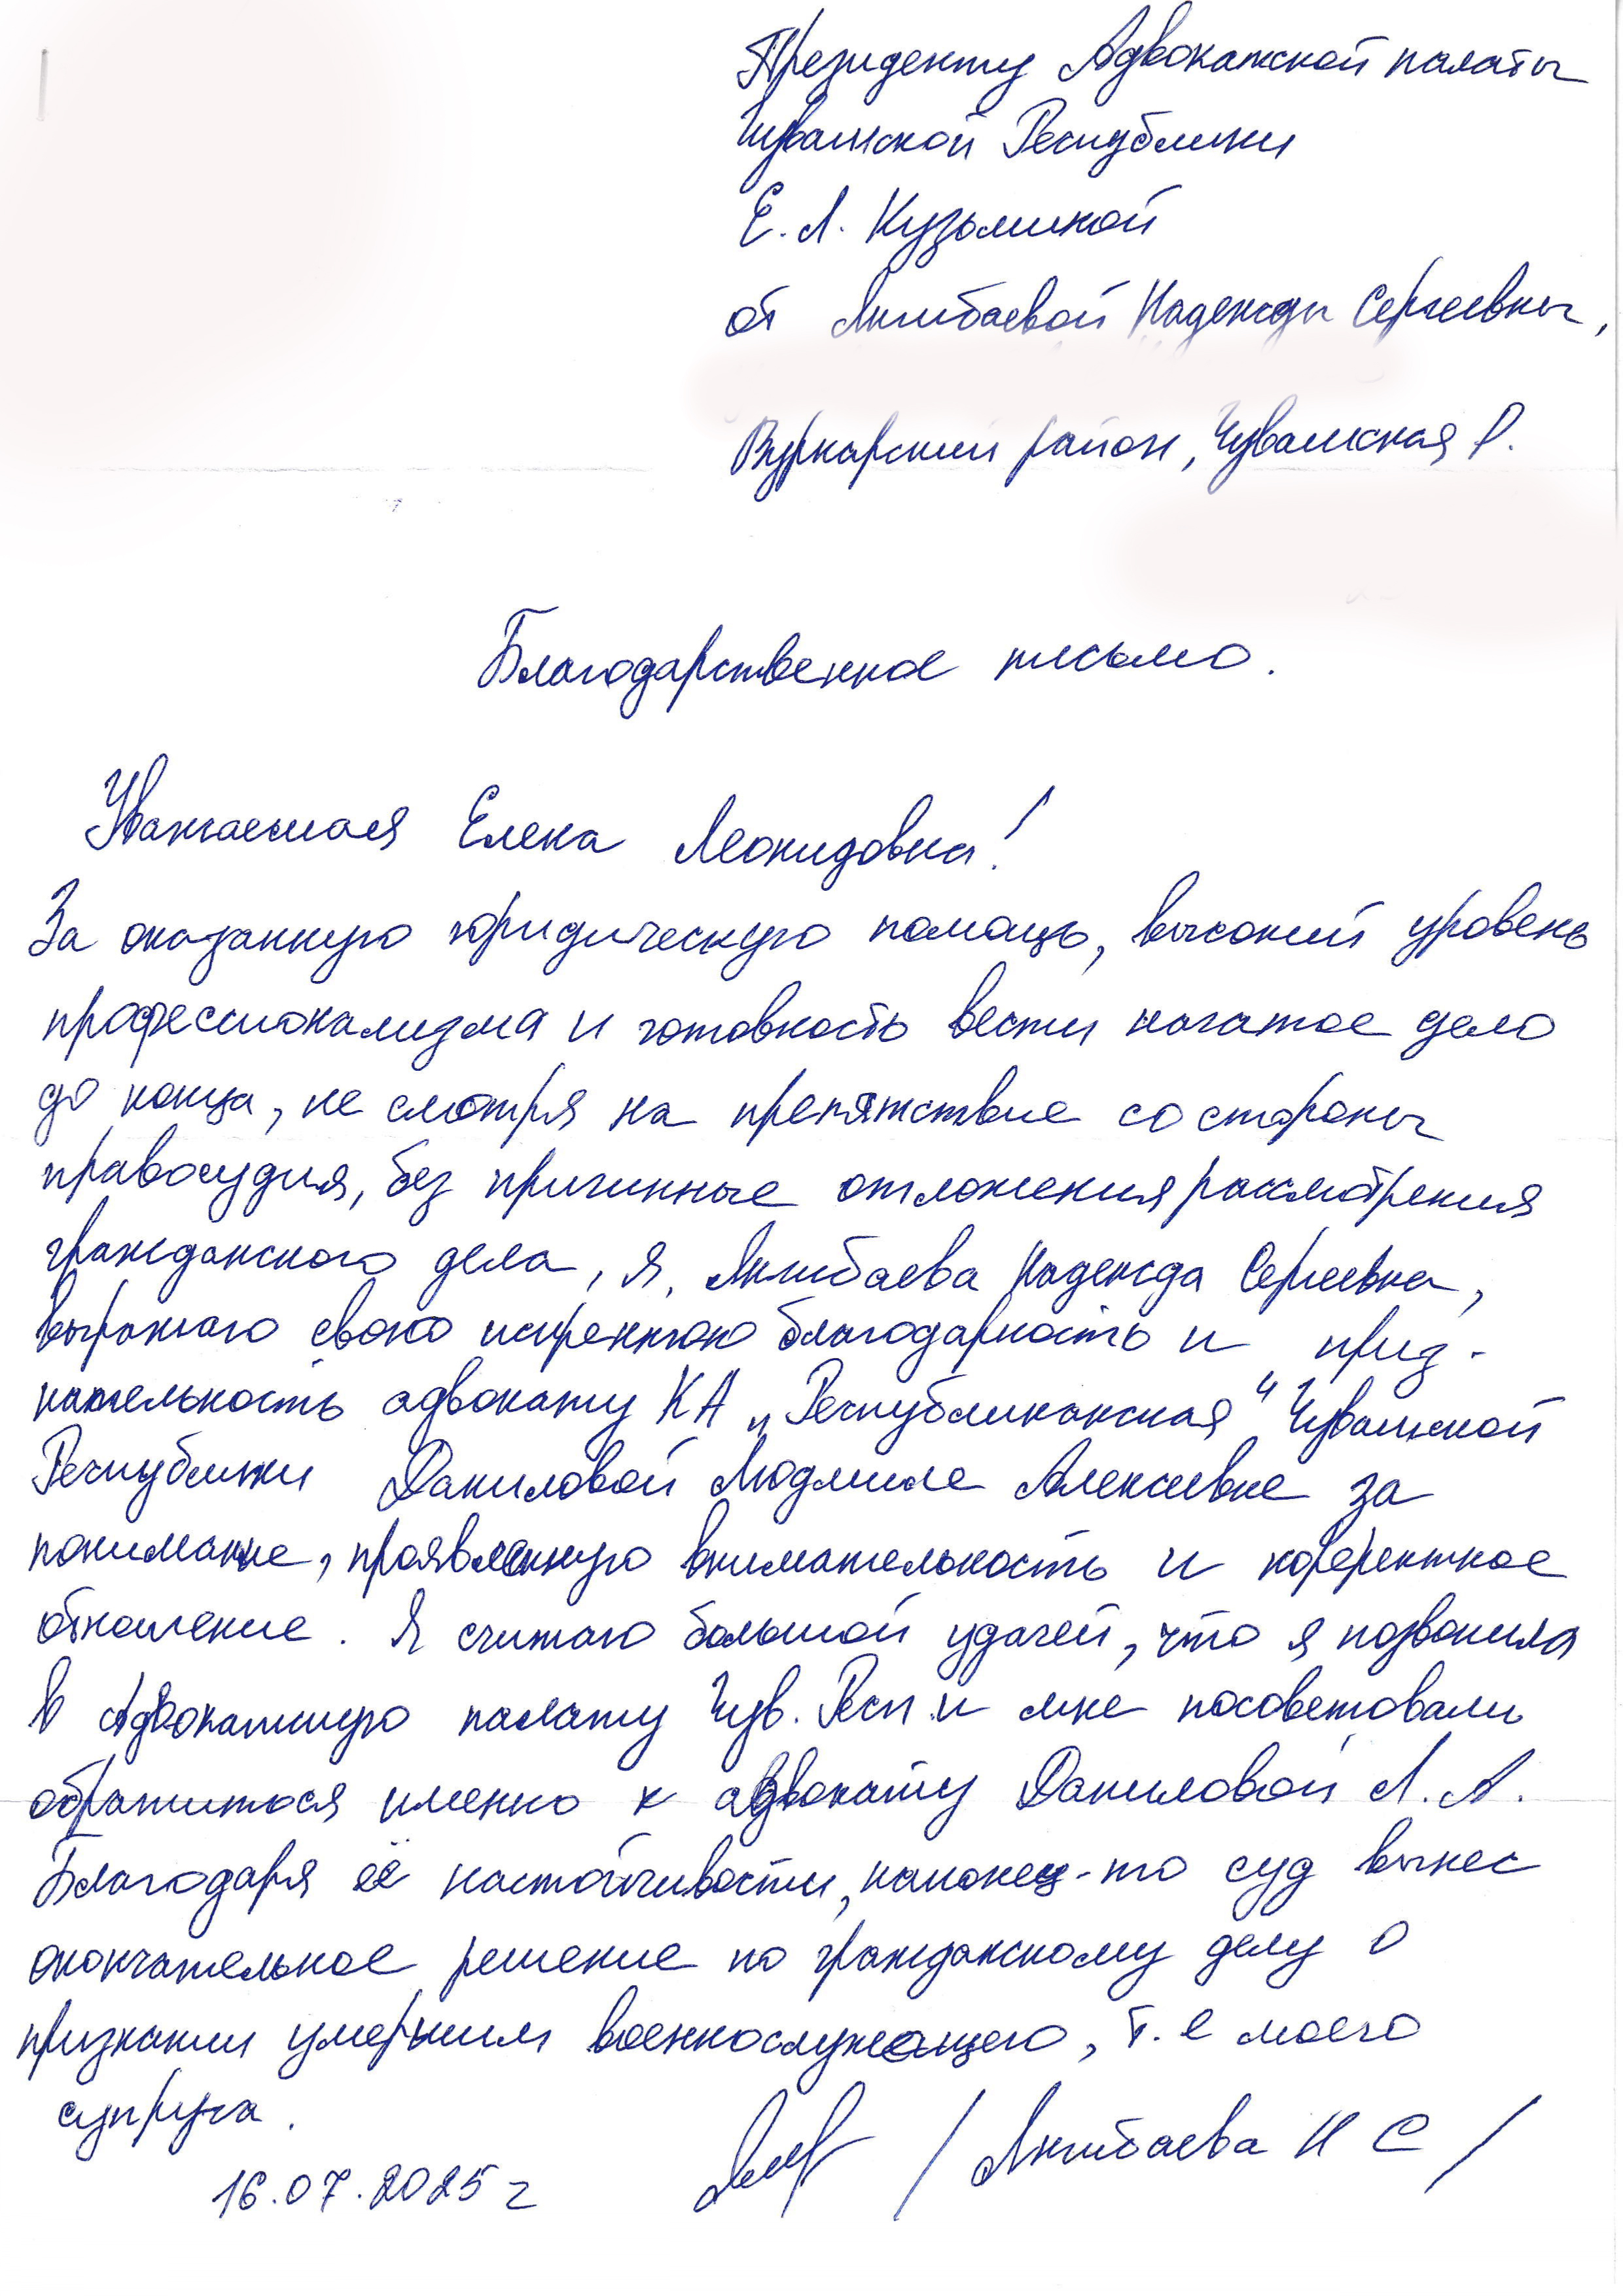 Президенту Адвокатской палаты
Чувашской Республики
Е. Л. Кузьминой
от Акшбаевой Надежды Сергеевны,
Вурнарский район, Чувашская Р.
Благодарственное письмо.
Уважаемая Елена Леонидовна!
За оказанную юридическую помощь, высокий уровень
профессионализма и готовность вести начатое дело
до конца, не смотря на препятствие со стороны
правосудия, без причинные отложения рассмотрения
гражданского дела, я, Надежда Сергеевна,
выражаю свою искреннюю благодарность и приз-
нательность адвокату КА „Республиканская“ Чувашской
Республики Даниловой Людмиле Алексеевне за
понимание, проявленную внимательность и корректное
отношение. Я считаю большой удачей, что я позвонила
в Адвокатскую палату Чув. Респ. и мне посоветовали
обратиться именно к адвокату Даниловой Л. А.
Благодаря её настойчивости, наконец-то суд вынес
окончательное решение по гражданскому делу о
признании умершим военнослужащего, т. е моего
супруга.
16.07.2025 г / Н С /